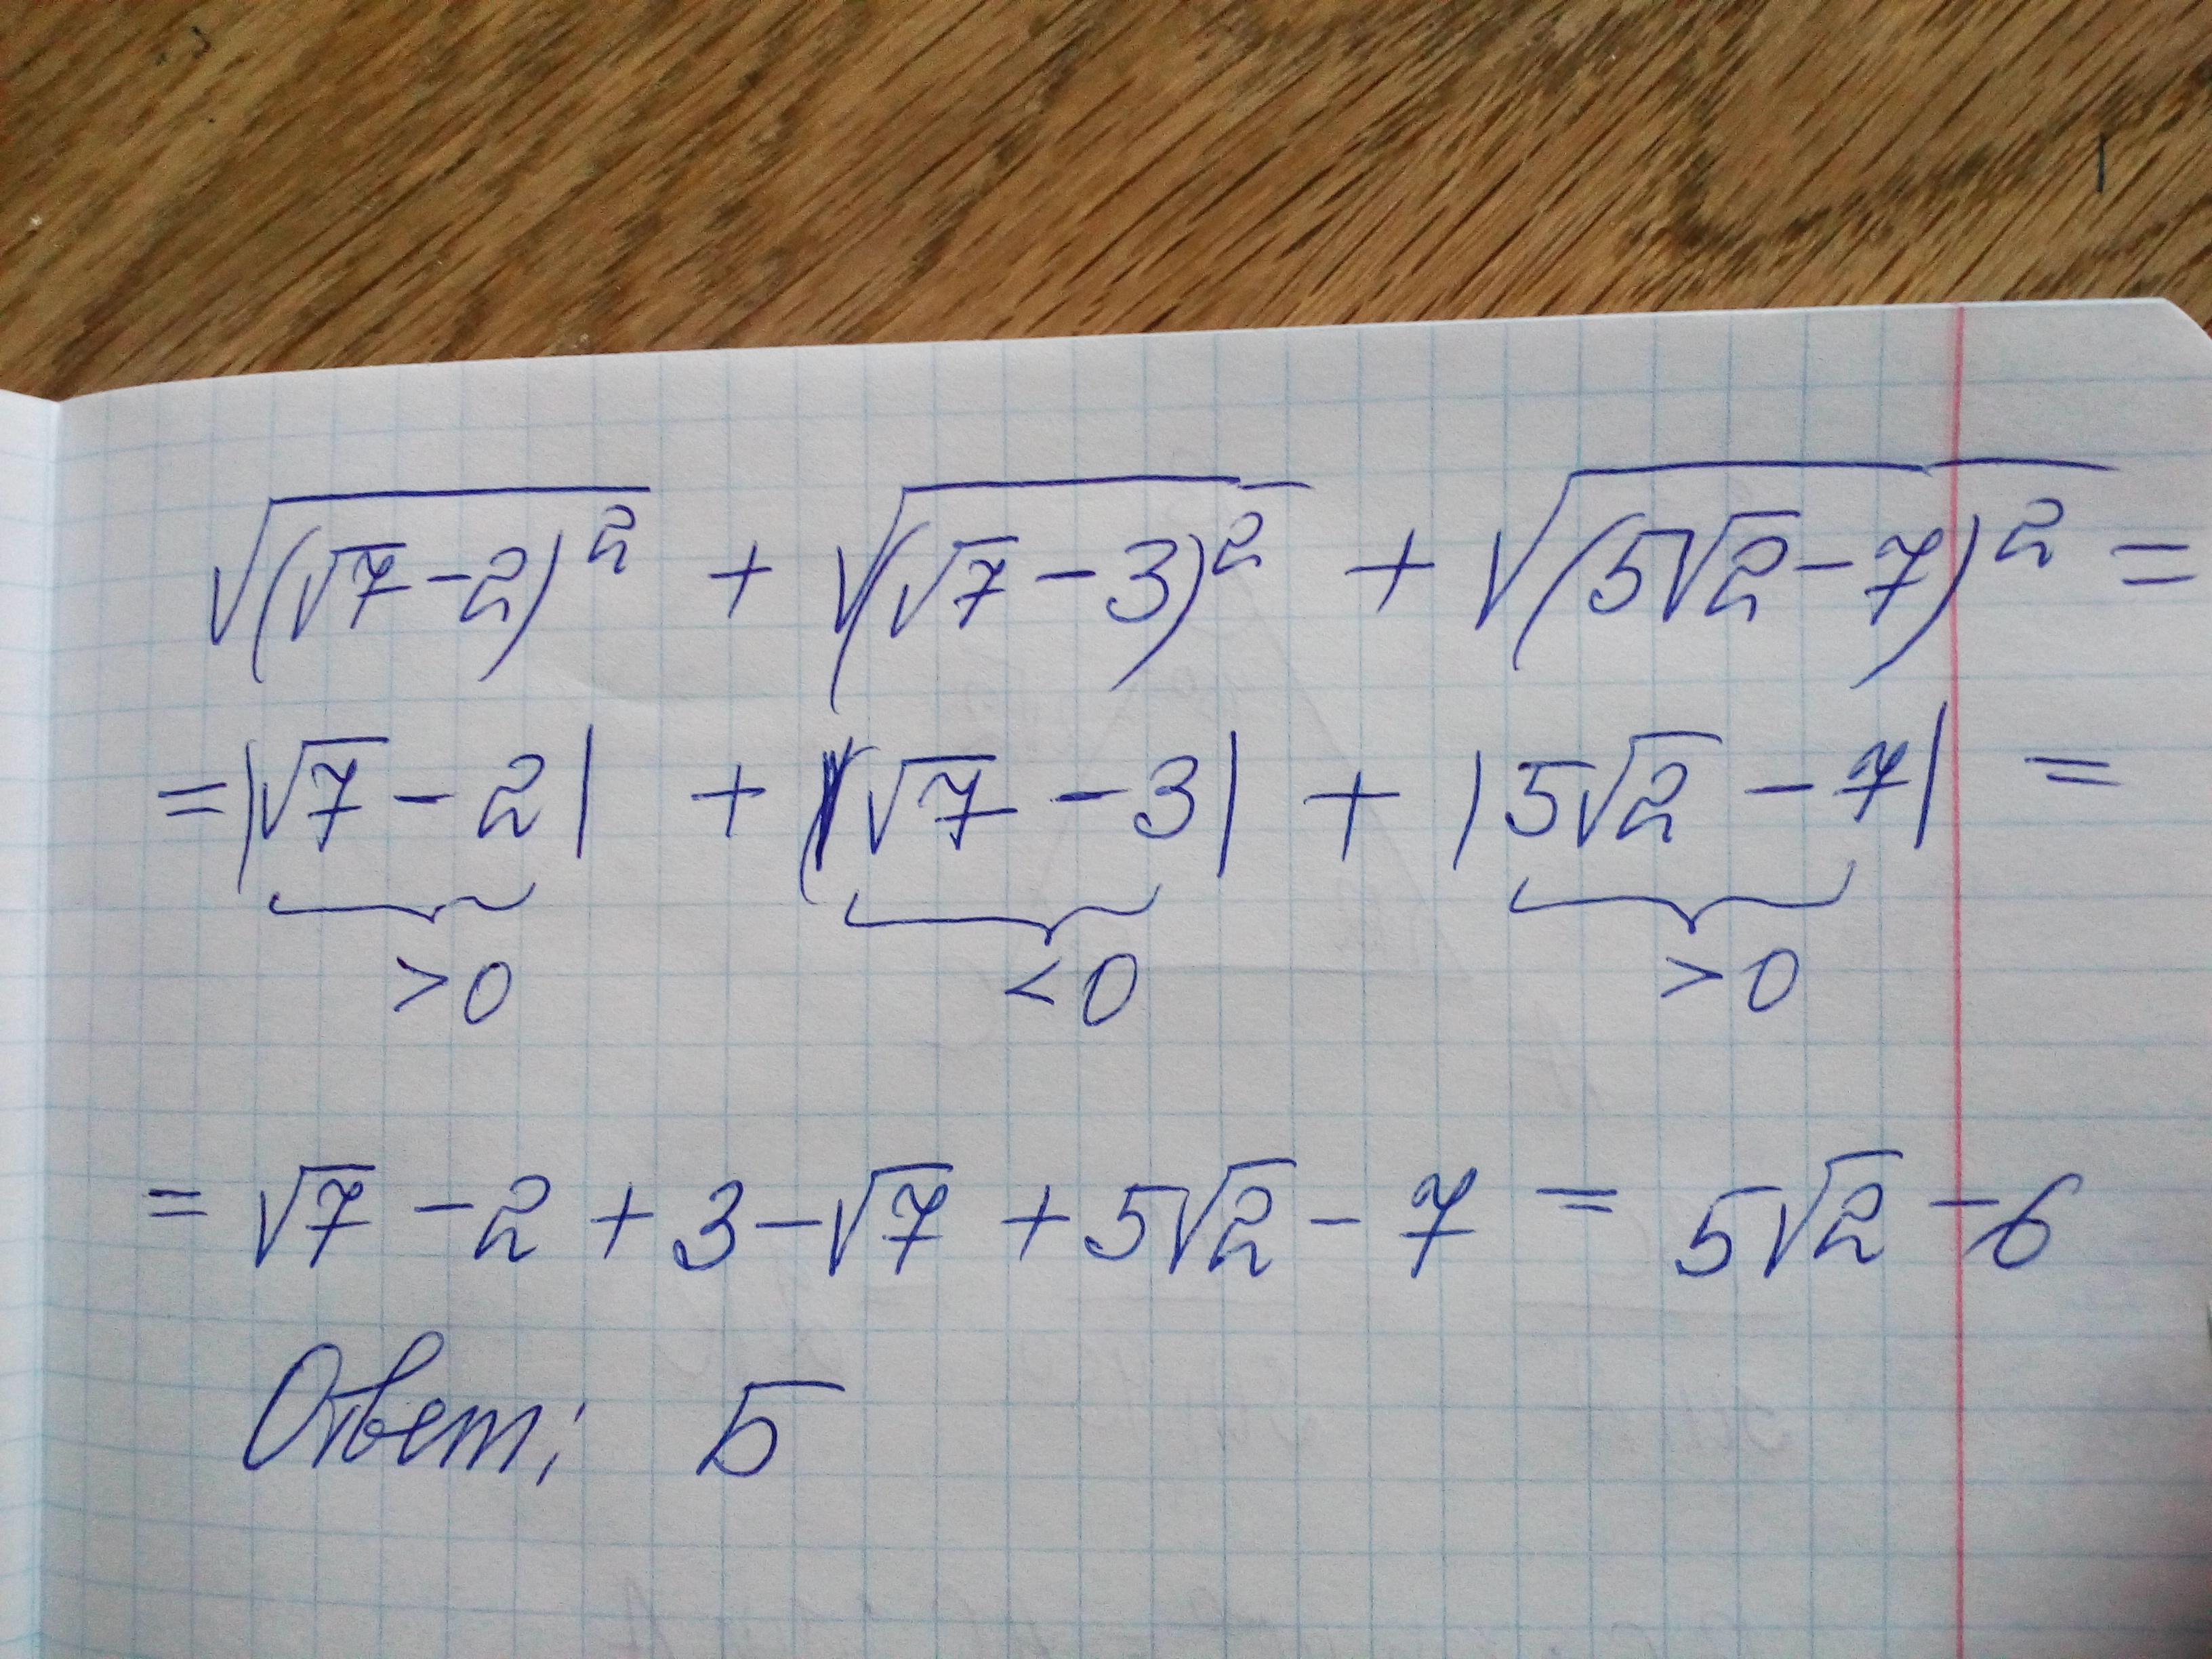 √(√7-2)² + √(√7-3)² + √(5√2-7)² =
= |√7-2| + |√7-3| + |5√2-7| =
>0 <0 >0
= √7-2+3-√7+5√2-7 = 5√2-6
Ответ: Б